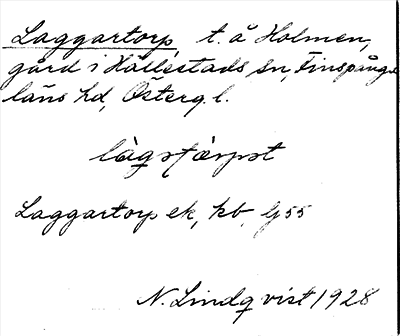 Laggartorp, t. å Holmen,
gård i Hällestads sn, Finspånga
läns hd, Österg. l.
Laggartorp ek, kb, G55
N. Lindqvist 1928